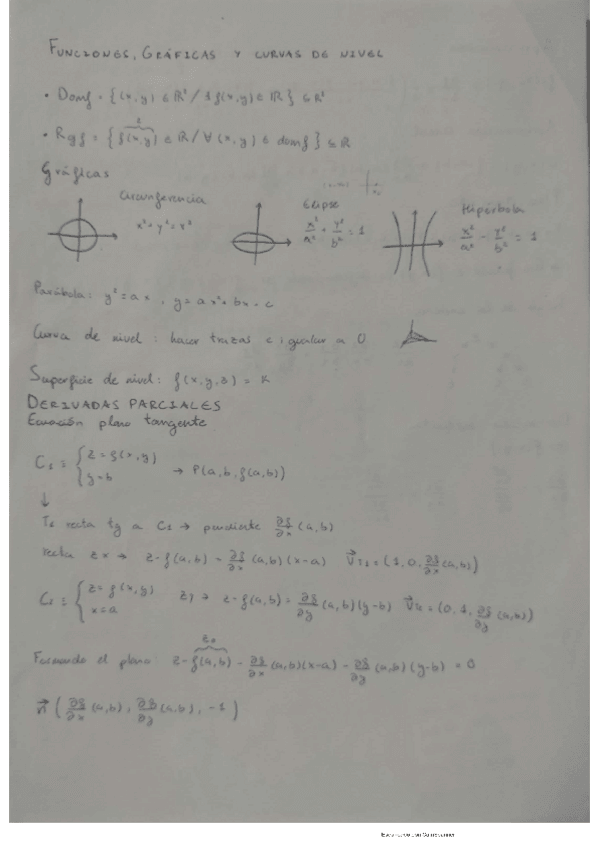 FUNCIONES, GRÁFICAS Y CURVAS DE NIVEL
• Domf = {(x,y) ∈ ℝ² / ∃ f(x,y) ∈ ℝ} ⊆ ℝ²
• Rgf = {f(x,y) ∈ ℝ / ∀ (x,y) ∈ domf} ⊆ ℝ
Gráficas
Circunferencia
x² + y² = r²
Elipse
x²/a² + y²/b² = 1
Hipérbola
x²/a² - y²/b² = 1
Parábola: y² = ax, y = ax² + bx + c
Curva de nivel: hacer trazas e igualar a 0
Superficie de nivel: f(x,y,z) = K
DERIVADAS PARCIALES
Ecuación plano tangente
C₁ ≡ { z = f(x,y) y = b → P(a,b,f(a,b))
↓
T₁ recta tg a C₁ → pendiente ∂f/∂x (a,b)
recta zx → z - f(a,b) = ∂f/∂x (a,b)(x-a) v⃗T₁ = (1,0,∂f/∂x(a,b))
C₂ ≡ { z = f(x,y) x = a zy → z - f(a,b) = ∂f/∂y (a,b)(y-b) v⃗T₂ = (0,1,∂f/∂y(a,b))
z₀
Formando el plano z - f(a,b) - ∂f/∂x (a,b)(x-a) - ∂f/∂y (a,b)(y-b) = 0
n⃗ (∂f/∂x (a,b), ∂f/∂y (a,b), -1)